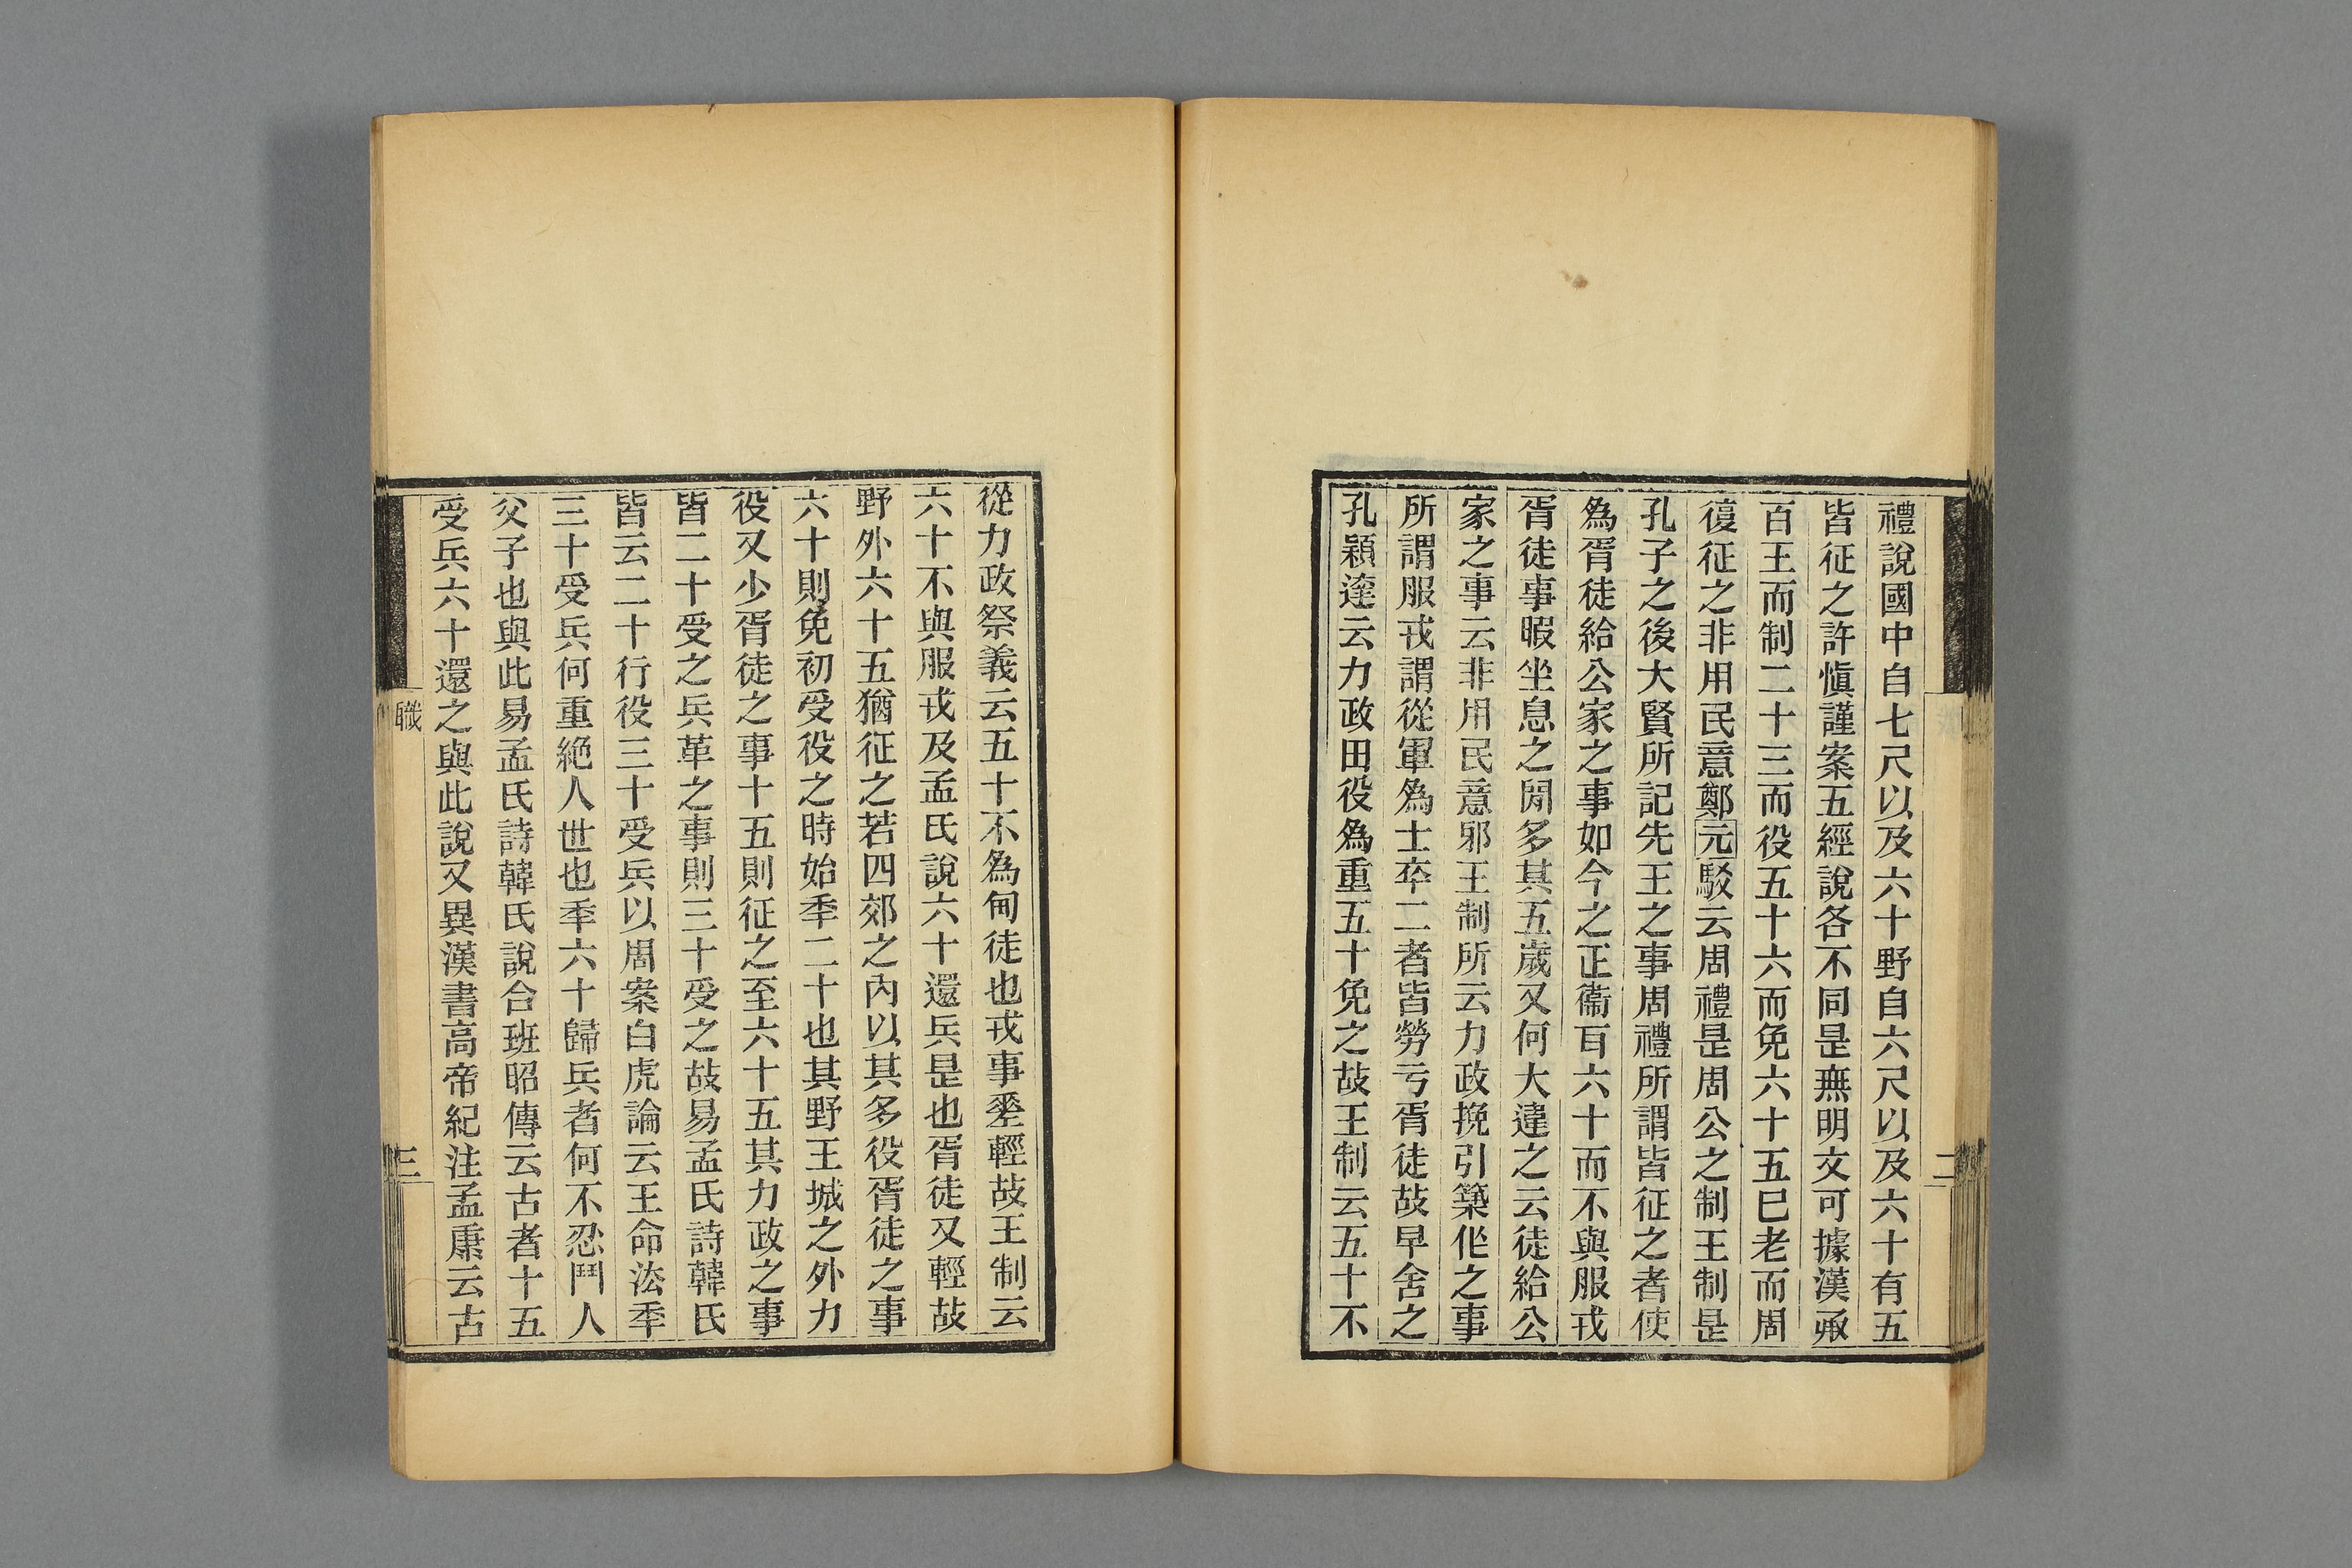 禮說國中自七尺以及六十野自六尺以及六十有五
皆征之許愼謹案五經說各不同是無明文可據漢承
百王而制二十三而役五十六而免六十五巳老而周
復征之非用民意鄭元駁云周禮是周公之制王制是
孔子之後大賢所記先王之事周禮所謂皆征之者使
爲胥徒給公家之事如今之正衞耳六十而不與服戎
胥徒事暇坐息之閒多其五歲又何大違之云徒給公
家之事云非用民意邪王制所云力政挽引築作之事
所謂服戎謂從軍爲士卒二者皆勞亏胥徒故早舍之
孔穎達云力政田役爲重五十免之故王制云五十不
從力政祭義云五十不爲甸徒也戎事差輕故王制云
六十不與服戎及孟氏說六十還兵是也胥徒又輕故
野外六十五猶征之若四郊之內以其多役胥徒之事
六十則免初受役之時始年二十也其野王城之外力
役又少胥徒之事十五則征之至六十五其力政之事
皆二十受之兵革之事則三十受之故易孟氏詩韓氏
皆云二十行役三十受兵以周案白虎論云王命法年
三十受兵何重絕人世也年六十歸兵者何不忍鬥人
父子也與此易孟氏詩韓氏說合班昭傳云古者十五
受兵六十還之與此說又異漢書高帝紀注孟康云古
職
三
二